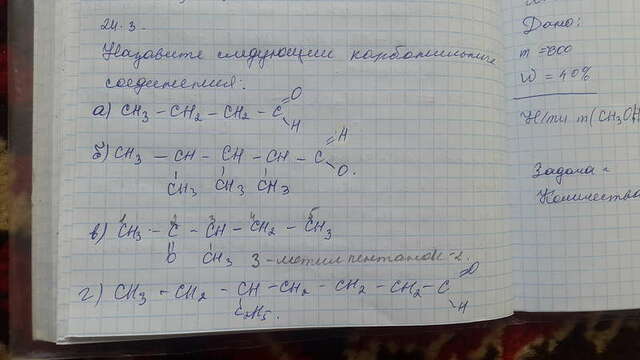 24.3.
Назовите следующии карбонильные
соединения:
а) CH3 – CH2 – CH2 – C
O
H
б) CH3 – CH – CH – CH – C
H
O.
CH3 CH3 CH3
1 2 3 4 5
в) CH3 – C – CH – CH2 – CH3
O CH3 3-метилпентанон-2.
г) CH3 – CH2 – CH – CH2 – CH2 – CH2 – C
O
H
C2H5.
Дано:
m = 800
W = 40%
m(CH3OH
Задача
Количества